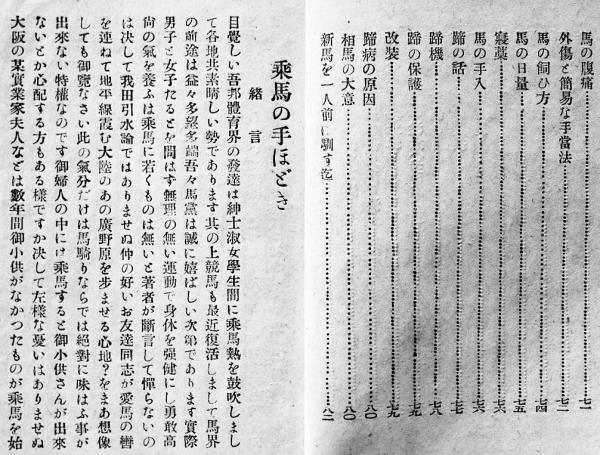 馬の腹痛……七一
外傷と簡易な手當法……七二
馬の飼ひ方……七四
馬の日量……七五
寢藁……七六
馬の手入……七六
蹄の話……七七
蹄機……七八
蹄の保護……七九
改裝……七九
蹄病の原因……八〇
相馬の大意……八〇
新馬を一人前に馴す迄……八二
乘馬の手ほどき
緒言
目覺しい吾邦體育界の發達は紳士淑女學生間に乘馬熱を鼓吹しまし
て各地共素晴しい勢であります其の上競馬も最近復活しまして馬界
の前途は益々多望多端吾々馬黨は誠に嬉ばしい次第であります實際
男子と女子たるとを問はず無理の無い運動で身体を强健にし勇敢高
尙の氣を養ふは乘馬に若くものは無いと著者が斷言して憚らないの
は決して我田引水論ではありませぬ仲の好いお友達同志が愛馬の轡
を連ねて地平線霞む大陸のあの廣野原を步ませる心地?をまあ想像
しても御覽なさい此の氣分だけは馬騎りならでは絕對に味はふ事が
出來ない特權なのです御婦人の中には乘馬すると御小供さんが出來
ないとか心配する方もある樣ですか決して左樣な憂いはありませぬ
大阪の某實業家夫人などは數年間御小供がなかつたものが乘馬を始